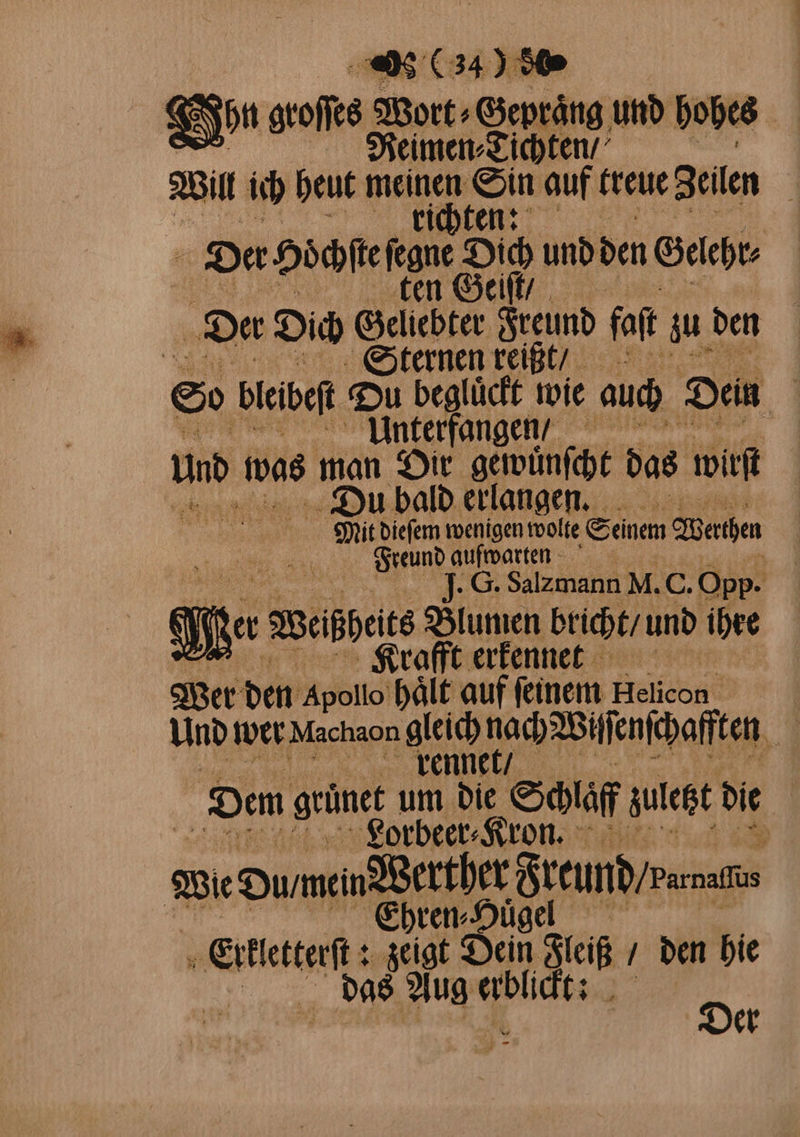 (34)
Ohn groſſes Wort-Gepraͤng und hohes
Reimen-Tichten/
Will ich heut meinen Sin auf treue Zeilen
richten:
Der Hoͤchſte ſegne Dich und den Gelehr-
ten Geiſt/
Der Dich Geliebter Freund faſt zu den
Sternen reißt/
So bleibeſt Du begluͤckt wie auch Dein
Unterfangen/
Und was man Dir gewuͤnſcht das wirſt
Du bald erlangen.
Mit dieſem wenigen wolte Seinem Werthen
Freund aufwarten
J. G. Salzmann M. C. Opp.
Wer Weißheits Blumen bricht/ und ihre
Krafft erkennet
Wer den Apollo haͤlt auf ſeinem Helicon
Und wer Machaon gleich nach Wiſſenſchafften
rennet/
Dem gruͤnet um die Schlaͤff zuletzt die
Lorbeer-Kron.
Wie Du/ mein Werther Freund/ Parnaſſus
Ehren-Huͤgel
Erkletterſt: zeigt Dein Fleiß / den hie
das Aug erblickt:
Der